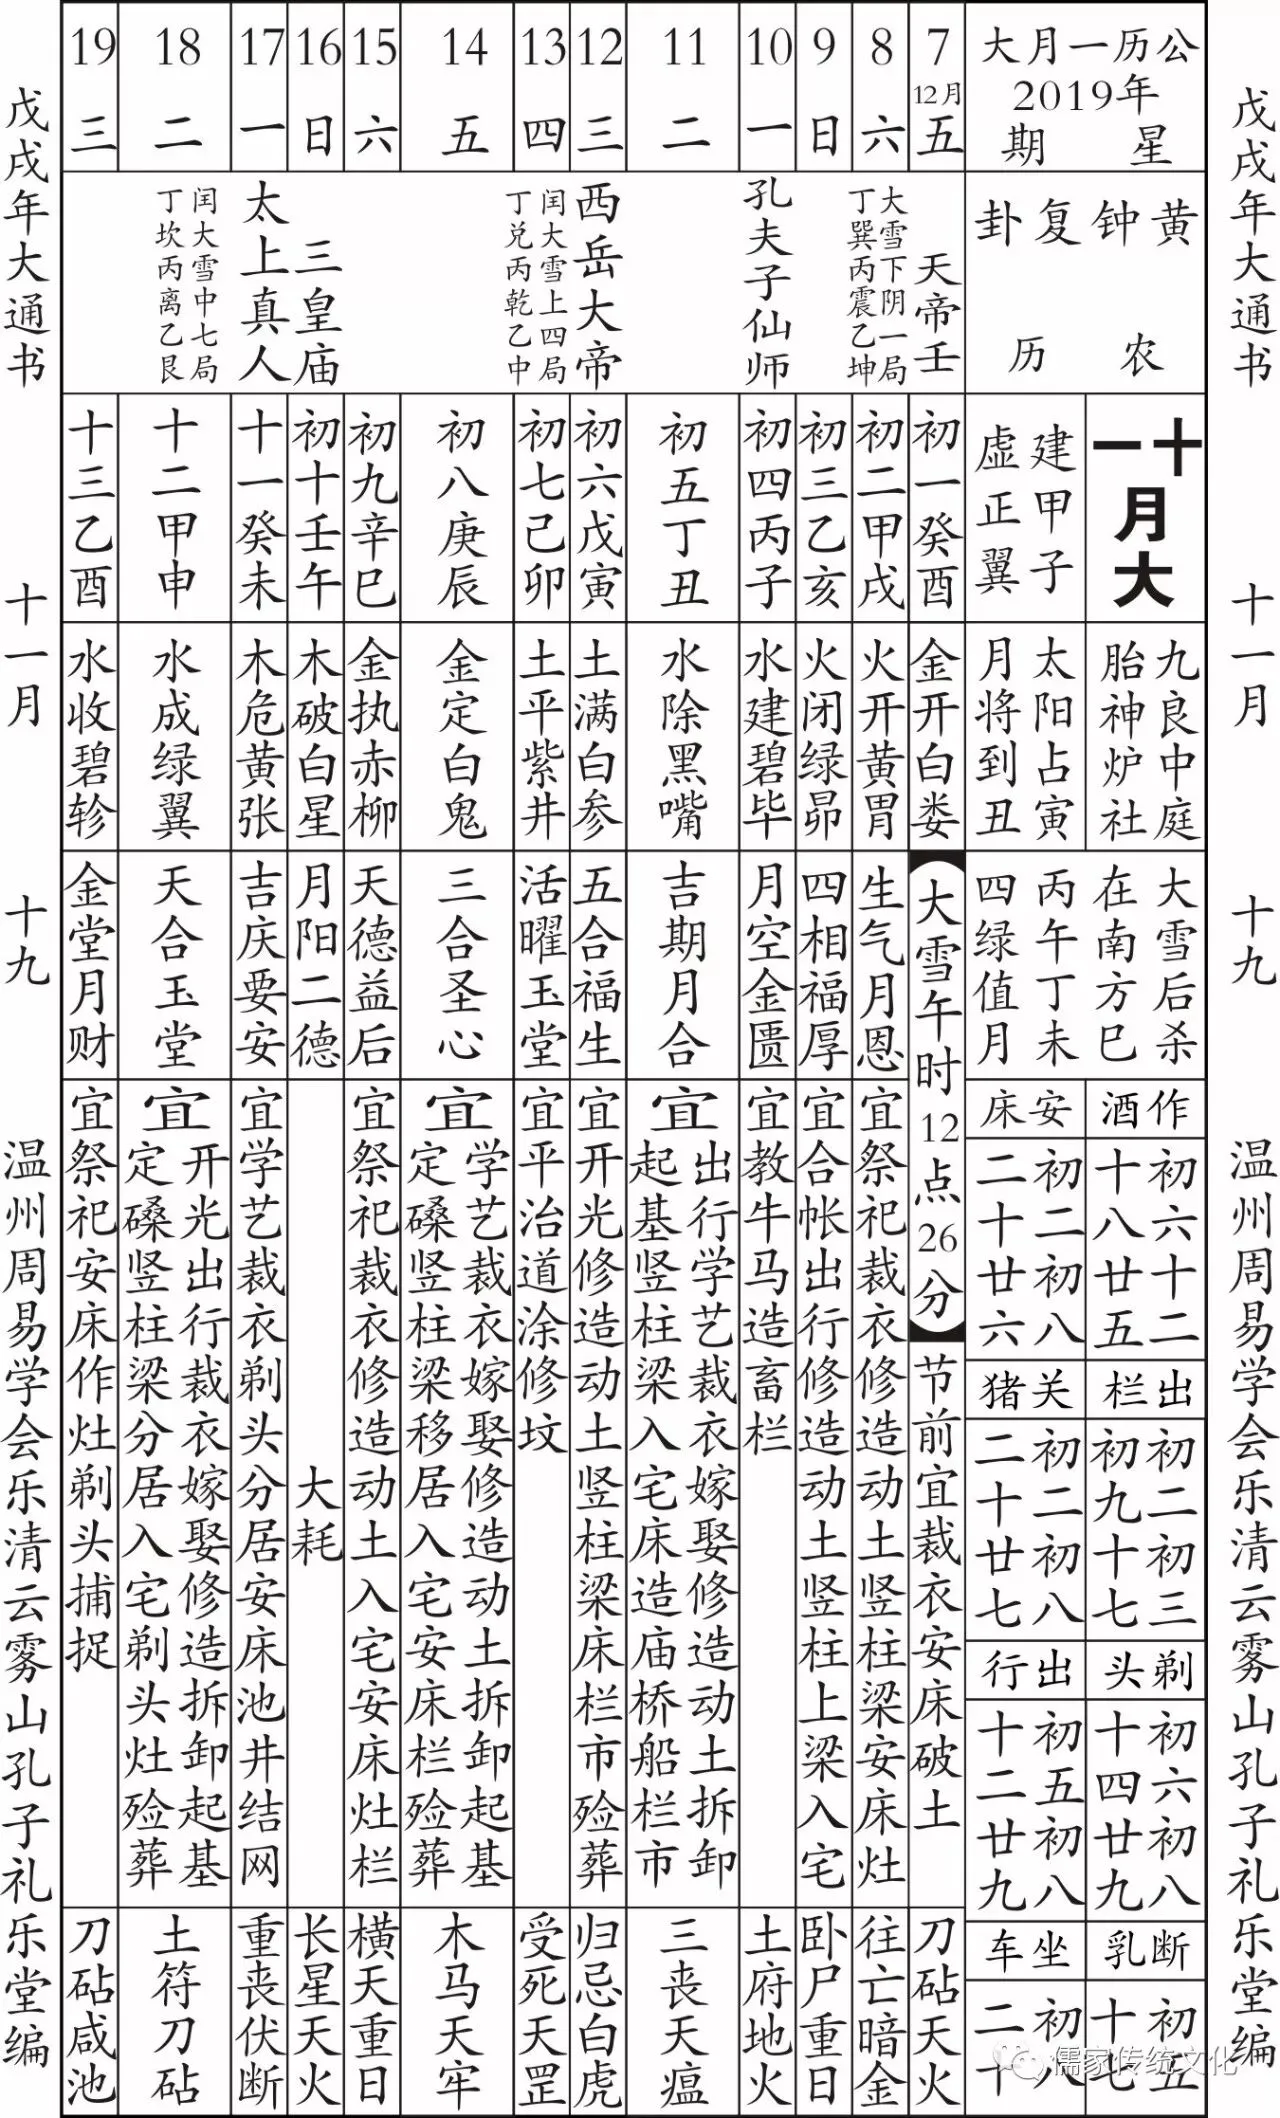 戊戌年大通书 十一月 十九 温州周易学会乐清云雾山孔子礼乐堂编
公历一月大
2019年
星期
黄钟复卦
农历
十一月大
建甲子
虚正翼
九良中庭
胎神炉社
太阳占寅
月将到丑
大雪后杀
在南方巳
丙午丁未
四绿值月
作酒
初六十二
十八廿五
安床
初二初八
二十廿六
出栏
初二初三
初九十七
关猪
初二初八
二十廿七
剃头
初六初八
十四廿九
出行
初五初八
十二廿九
断乳
初五
十七
坐车
初八
二十
7
12月
五
天帝壬
初一癸酉
金开白娄
大雪午时12点26分
节前宜裁衣安床破土
刀砧天火
8
六
大雪下阴一局
丁巽丙震乙坤
初二甲戌
火开黄胃
生气月恩
宜祭祀裁衣修造动土竖柱梁安床灶
往亡暗金
9
日
初三乙亥
火闭绿昴
四相福厚
宜合帐出行修造动土竖柱上梁入宅
卧尸重日
10
一
孔夫子仙师
初四丙子
水建碧毕
月空金匮
宜教牛马造畜栏
土府地火
11
二
初五丁丑
水除黑嘴
吉期月合
宜
出行学艺裁衣嫁娶修造动土拆卸
起基竖柱梁入宅床造庙桥船栏市
三丧天瘟
12
三
西岳大帝
初六戊寅
土满白参
五合福生
宜开光修造动土竖柱梁床栏市殓葬
归忌白虎
13
四
闰大雪上四局
丁兑丙乾乙中
初七己卯
土平紫井
活曜玉堂
宜平治道涂修坟
受死天罡
14
五
初八庚辰
金定白鬼
三合圣心
宜
学艺裁衣嫁娶修造动土拆卸起基
定磉竖柱梁移居入宅安床栏殓葬
木马天牢
15
六
初九辛巳
金执赤柳
天德益后
宜祭祀裁衣修造动土入宅安床灶栏
横天重日
16
日
三皇庙
初十壬午
木破白星
月阳二德
大耗
长星天火
17
一
太上真人
十一癸未
木危黄张
吉庆要安
宜学艺裁衣剃头分居安床池井结网
重丧伏断
18
二
闰大雪中七局
丁坎丙离乙艮
十二甲申
水成绿翼
天合玉堂
宜
开光出行裁衣嫁娶修造拆卸起基
定磉竖柱梁分居入宅剃头灶殓葬
土符刀砧
19
三
十三乙酉
水收碧轸
金堂月财
宜祭祀安床作灶剃头捕捉
刀砧咸池
戊戌年大通书 十一月 十九 温州周易学会乐清云雾山孔子礼乐堂编
儒家传统文化